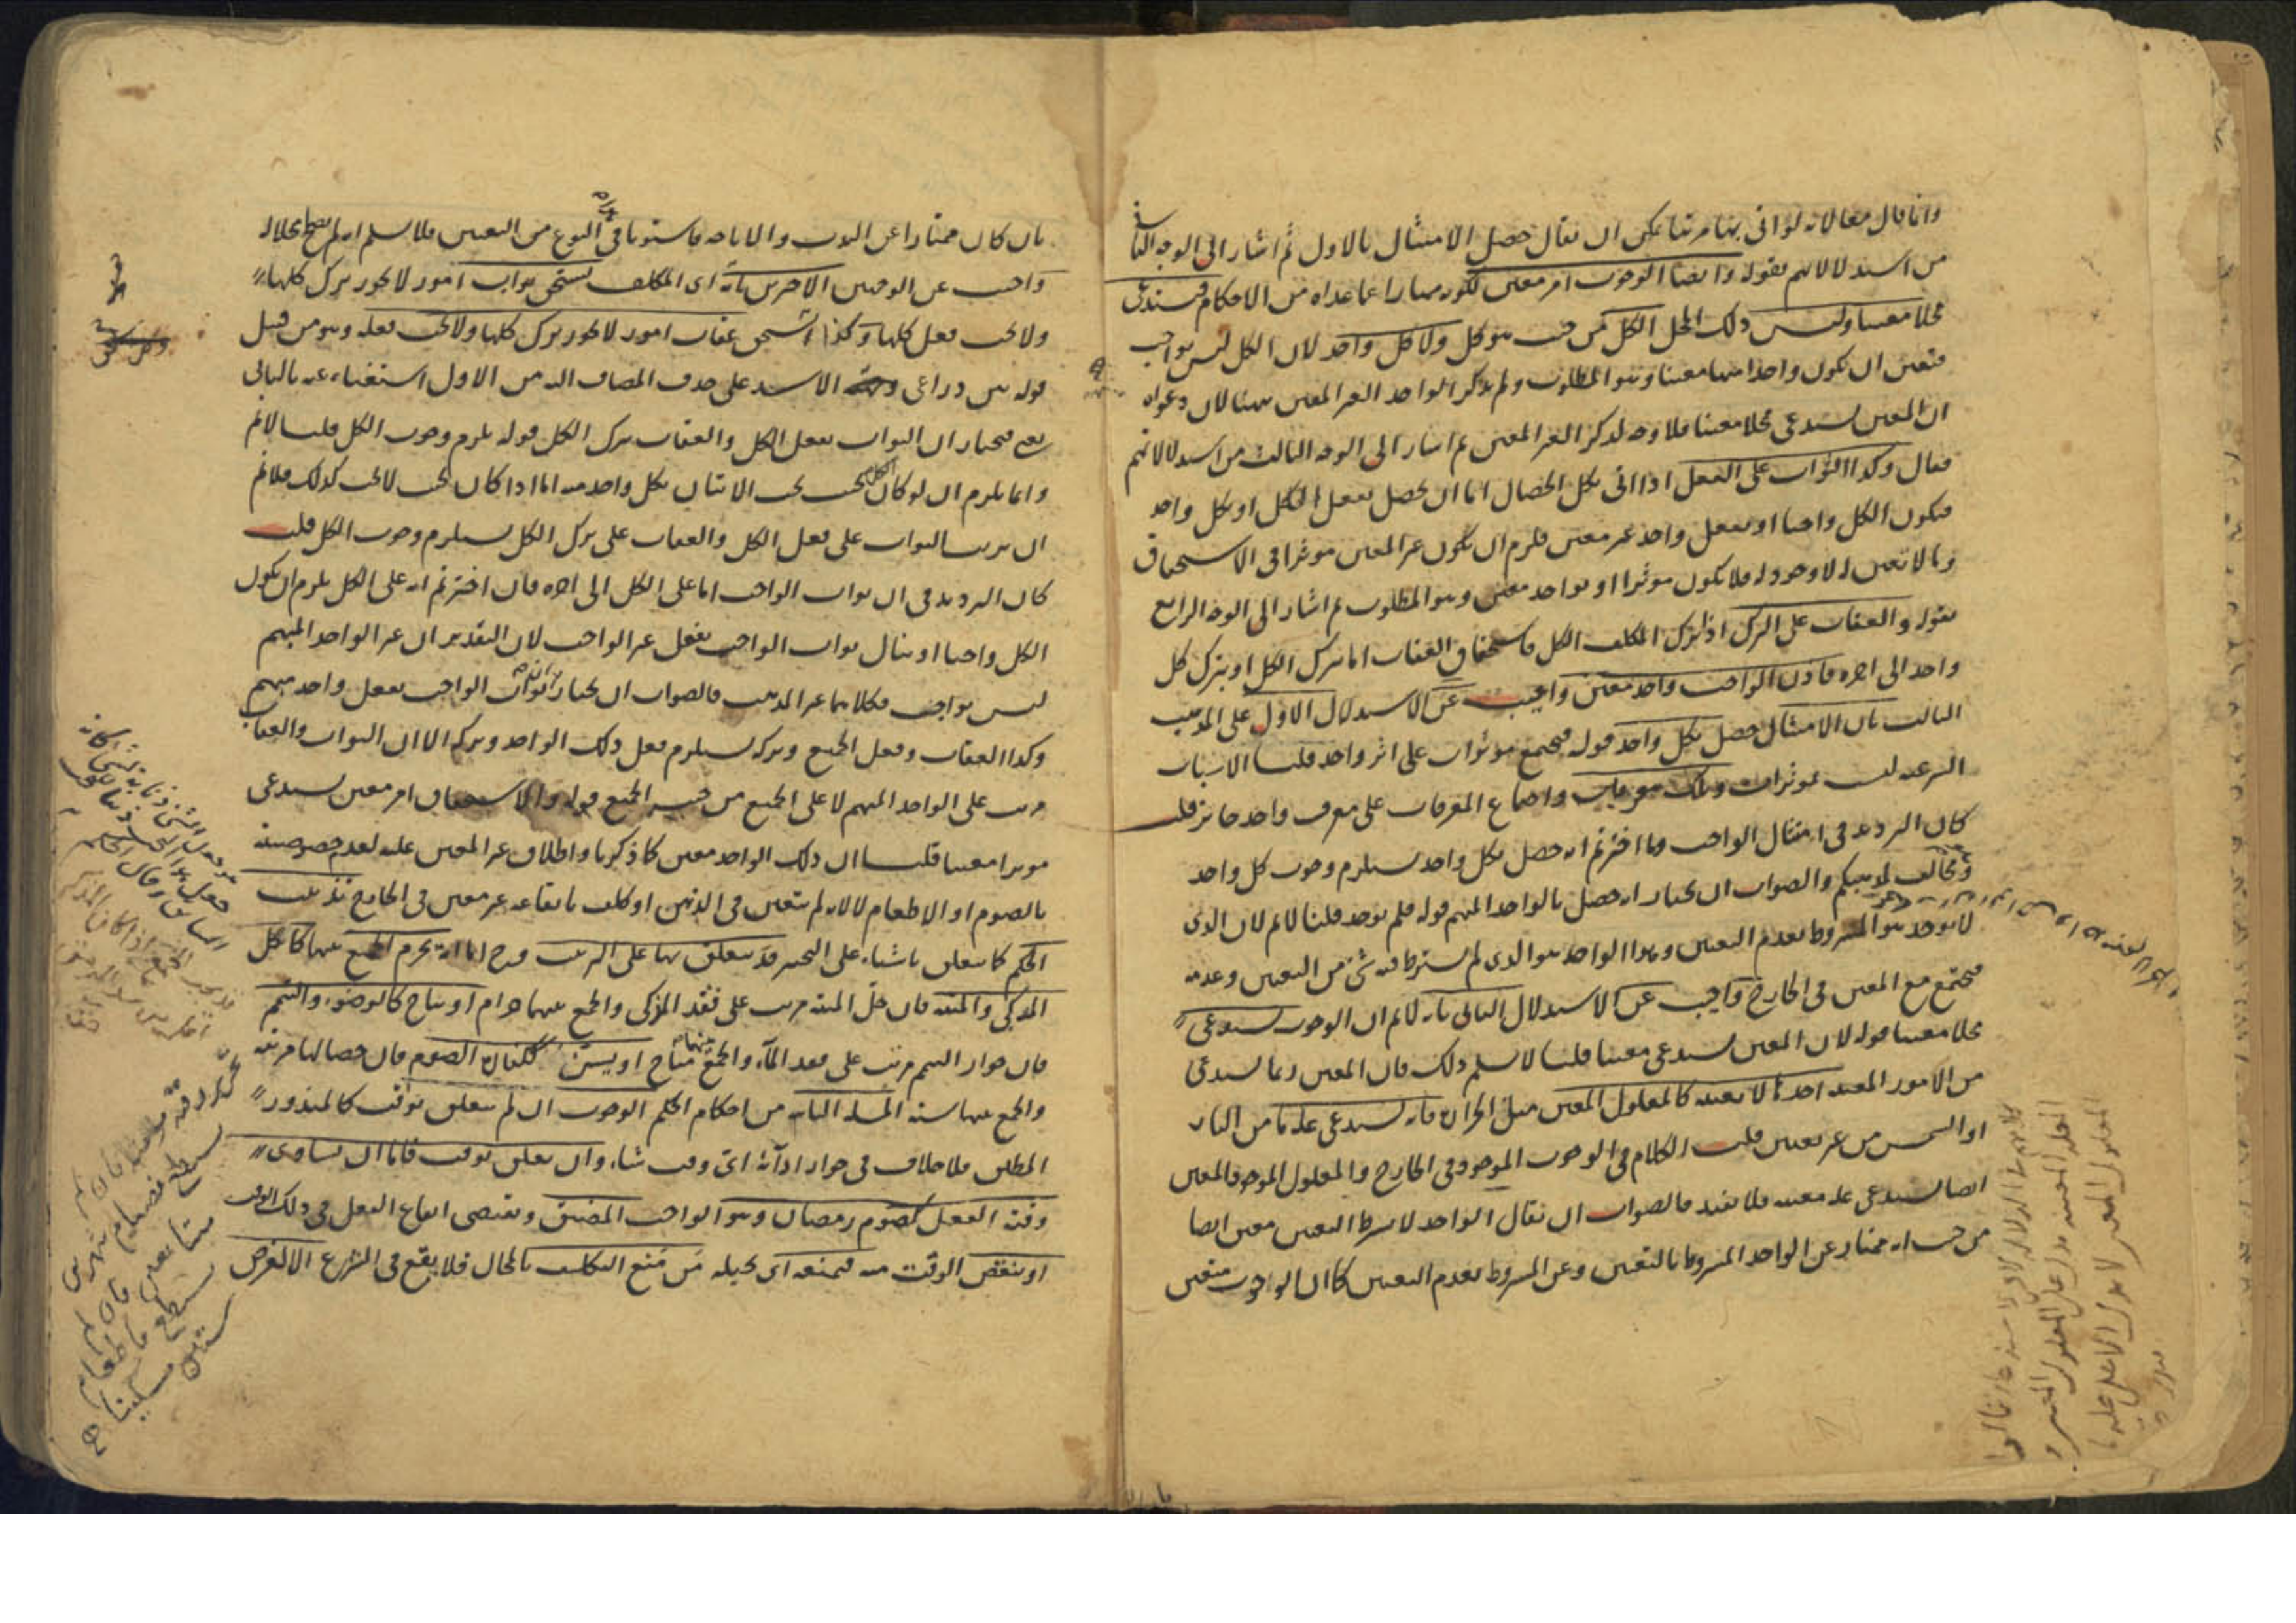 وانما قال معا لانه لو اتى بها مرتبا يمكن ان يقال حصل الامتثال بالاول ثم اشار الى الوجه الثانى
من استدلالاتهم بقوله وايضا الوجوب امر معين لكونه ممتازا عما عداه من الاحكام فيستدعى
محلا معينا وليس ذلك المحل الكل من حيث هو كل ولا كل واحد لان الكل ليس بواجب
فتعين ان يكون واحدا منها معينا وهو المطلوب ولم يذكر الواحد الغير المعين ههنا لان دعواه
ان المعين يستدعى محلا معينا فلا وجه لذكر الغير المعين ثم اشار الى الوجه الثالث من استدلالاتهم
فقال وكذا الثواب على الفعل اذا اتى بكل الخصال اما ان يحصل بفعل الكل او بكل واحد
فيكون الكل واجبا او بفعل واحد غير معين فلزم ان يكون غير المعين موثرا فى الاستحقاق
وما لا تعين له لا وجود له فلا يكون موثرا او بواحد معين وهو المطلوب ثم اشار الى الوجه الرابع
بقوله والعقاب على الترك اذا ترك المكلف الكل فاستحقاق العقاب اما بترك الكل او بترك كل
واحد الى اخره فاذن الواجب واحد معين واجيب عن الاستدلال الاول على المذهب
الثالث بان الامتثال حصل بكل واحد قوله فيجتمع موثرات على اثر واحد قلنا الاسباب
الشرعية ليست بموثرات وتلك معرفات واجتماع المعرفات على معرف واحد جائز قلت
كان الترديد فى امتثال الواجب وما اخترتم انه حصل بكل واحد يستلزم وجوب كل واحد
ويخالف لمذهبكم والصواب ان يختار انه حصل بالواحد المبهم قوله فلم يوجد قلنا لا نم لان الذى
لا يوجد هو المشروط بعدم التعين وهذا الواحد هو الذى لم يشترط فيه شئ من التعين وعدمه
فيجتمع مع المعين فى الخارج واجيب عن الاستدلال الثانى بانه لا نم ان الوجوب يستدعى
محلا معينا قوله لان المعين يستدعى معينا قلنا لا نسلم ذلك فان المعين ربما يستدعى
من الامور المعينة احدها لا بعينه كالمعلول المعين مثل الحرارة فانه يستدعى علة ما من النار
او الشمس من غير تعيين قلت الكلام فى الوجوب الموجود فى الخارج والمعلول الموجود المعين
ايضا يستدعى علة معينة فلا يفيد فالصواب ان يقال الواحد لا بشرط التعين معين ايضا
من حيث انه ممتاز عن الواحد المشروط بالتعين وعن المشروط بعدم التعين كما ان الوجوب متعين
بان كان ممتازا عن الندب والاباحة فاستويا فى النوع من التعين فلا نسلم انه لم يصلح محلا له
واجيب عن الوجهين الاخرين بانه اى المكلف يستحق ثواب امور لا يجوز ترك كلها
ولا يجب فعل كلها وكذا يستحق عقاب امور لا يجوز ترك كلها ولا يجب فعله وهو من قبيل
قوله بين ذراعى وجبهة الاسد على حذف المضاف اليه من الاول استغناء عنه بالثانى
يعنى فيختار ان الثواب بفعل الكل والعقاب بترك الكل قوله يلزم وجوب الكل قلنا لا نم
وانما يلزم ان لو كان الكل بحيث يجب الاتيان بكل واحد منه اما اذا كان بحيث لا يجب كذلك فلا نم
ان ترتب الثواب على فعل الكل والعقاب على ترك الكل يستلزم وجوب الكل قلت
كان الترديد فى ان ثواب الواجب اما على الكل الى اخره فان اخترتم انه على الكل يلزم ان يكون
الكل واجبا او ينال ثواب الواجب بفعل غير الواجب لان التقدير ان غير الواحد المبهم
ليس بواجب فكلاهما غير المذهب فالصواب ان يختار ان ثواب الواجب بفعل واحد مبهم
وكذا العقاب وفعل الجميع وتركه يستلزم فعل ذلك الواحد وتركه الا ان الثواب والعقاب
مرتب على الواحد المبهم لا على الجميع من حيث الجميع قوله والاستحقاق امر معين يستدعى
موثرا معينا قلنا ان ذلك الواحد معين كما ذكرنا واطلاق غير المعين عليه لعدم خصوصيته
بالصوم او الاطعام لا لانه لم يتعين فى الذهن او كلف بايقاعه غير معين فى الخارج تذنيب
الحكم كما يتعلق باشياء على التخيير قد يتعلق بها على الترتيب وح اما ان يحرم الجمع بينها كاكل
المذكى والميتة فان حل الميتة مرتب على فقد المذكى والجمع بينهما حرام او يباح كالوضوء والتيمم
فان جواز التيمم مرتب على فقد الماء والجمع بينهما مباح او يسن ككفارة الصوم فان خصالها مرتبة
والجمع بينها سنة المسئلة الثانية من احكام الحكم الوجوب ان لم يتعلق بوقت كالمنذور
المطلق فلا خلاف فى جواز ادائه اى وقت شاء وان تعلق بوقت فاما ان يساوى
وقته الفعل كصوم رمضان وهو الواجب المضيق ويقتضى ايقاع الفعل فى ذلك الوقت
او ينقص الوقت منه فيمنعه اى يحيله من منع التكليف بالمحال فلا يقع فى الشرع الا لغرض